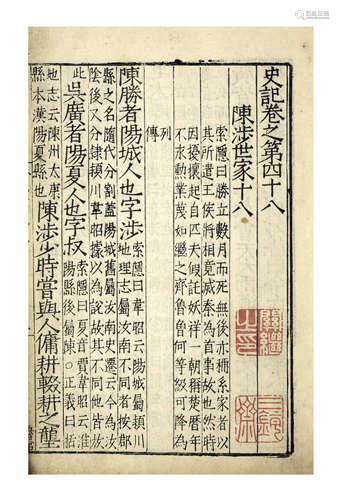 史記卷之第四十八
陳涉世家十八
索隱曰勝立數月而死無後亦稱系家者以
其所遣王侯將相竟滅秦為首事故也然時
因擾攘起自匹夫假託妖祥一朝稱楚曆年
不永勲業蔑如繼之齊魯曾何等級可降為
列
傳
陳勝者陽城人也字涉
索隱曰韋昭云陽城屬潁川
地理志屬汝南不同者按郡
縣之名隨代分割蓋陽城舊屬汝南史遷云今為汝
陰後又分隷潁川韋昭據以為說故其不同他皆放
此
吳廣者陽夏人也字叔
索隱曰夏音賈韋昭云淮
陽縣後屬陳○正義曰括
地志云陳州太康
縣本漢陽夏縣也
陳涉少時嘗與人傭耕輟耕之壟